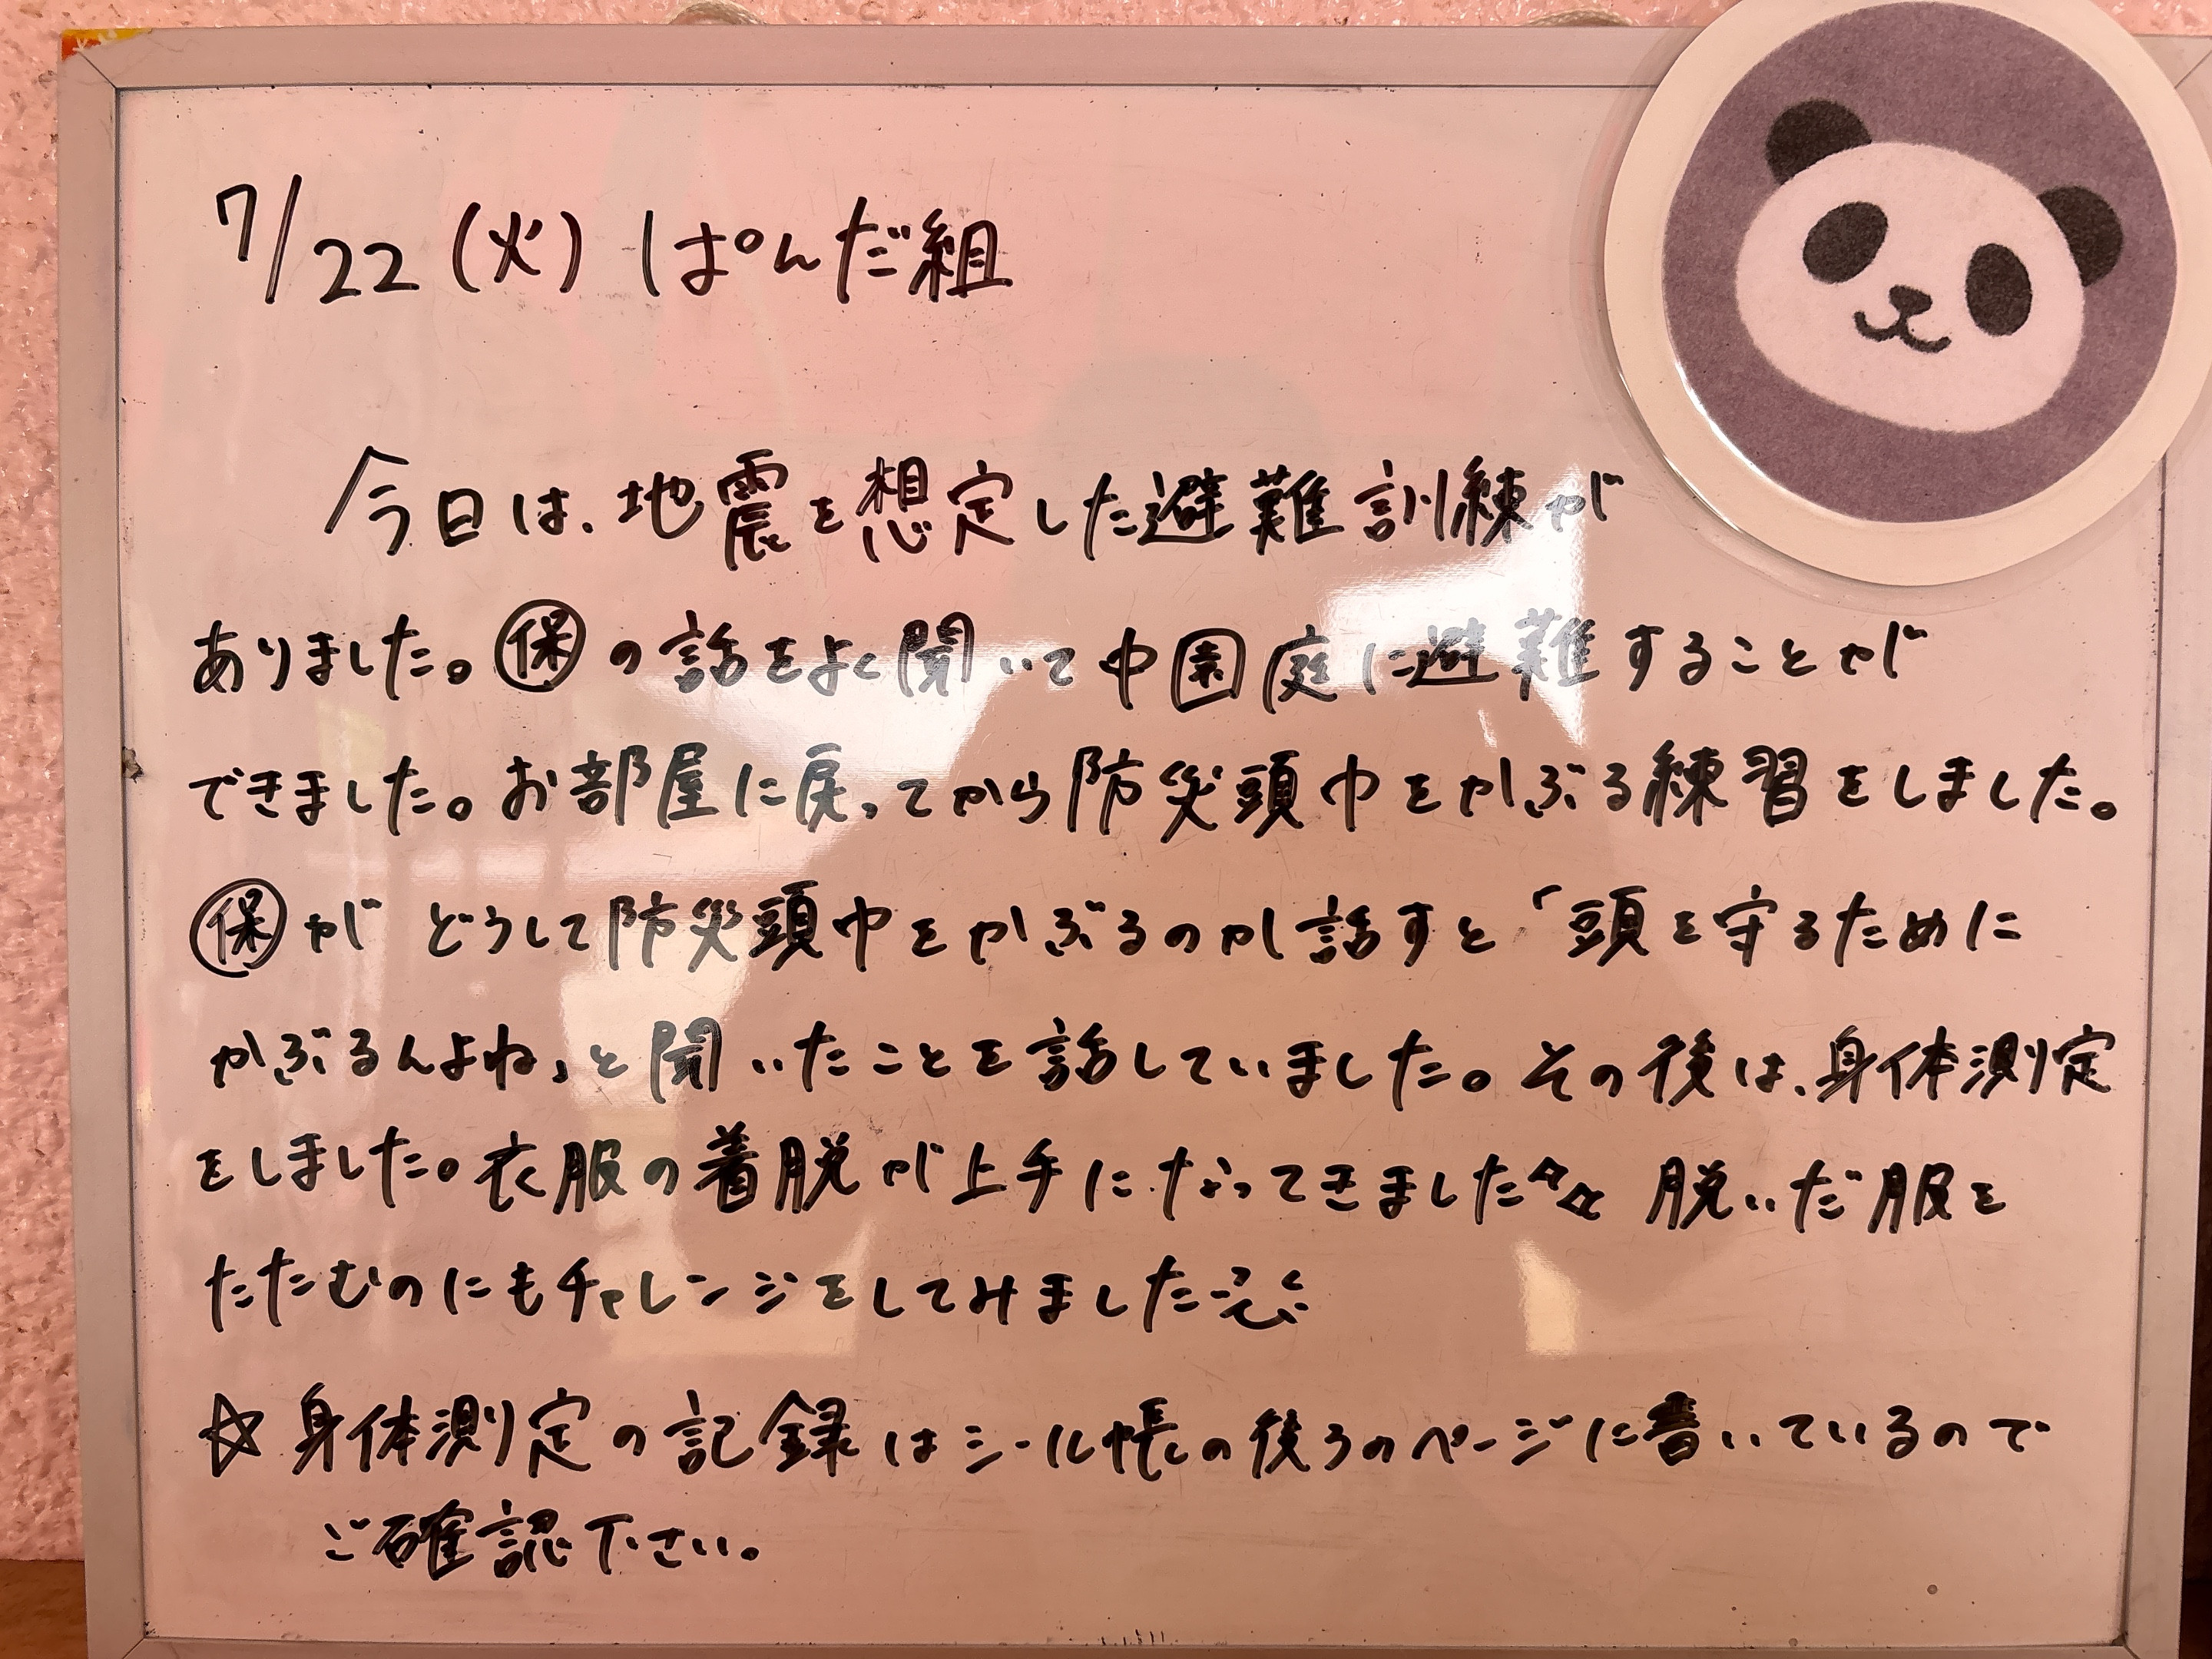 7/22(火) ぱんだ組
今日は、地震を想定した避難訓練が
ありました。㋭の話をよく聞いて中園庭に避難することが
できました。お部屋に戻ってから防災頭巾をかぶる練習をしました。
保がどうして防災頭巾をかぶるのか話すと「頭を守るために
かぶるんよね」と聞いたことを話していました。その後は、身体測定
をしました。衣服の着脱が上手になってきました 脱いだ服を
たたむのにもチャレンジをしてみました
☆身体測定の記録はシール帳の後ろのページに書いているので
ご確認下さい。